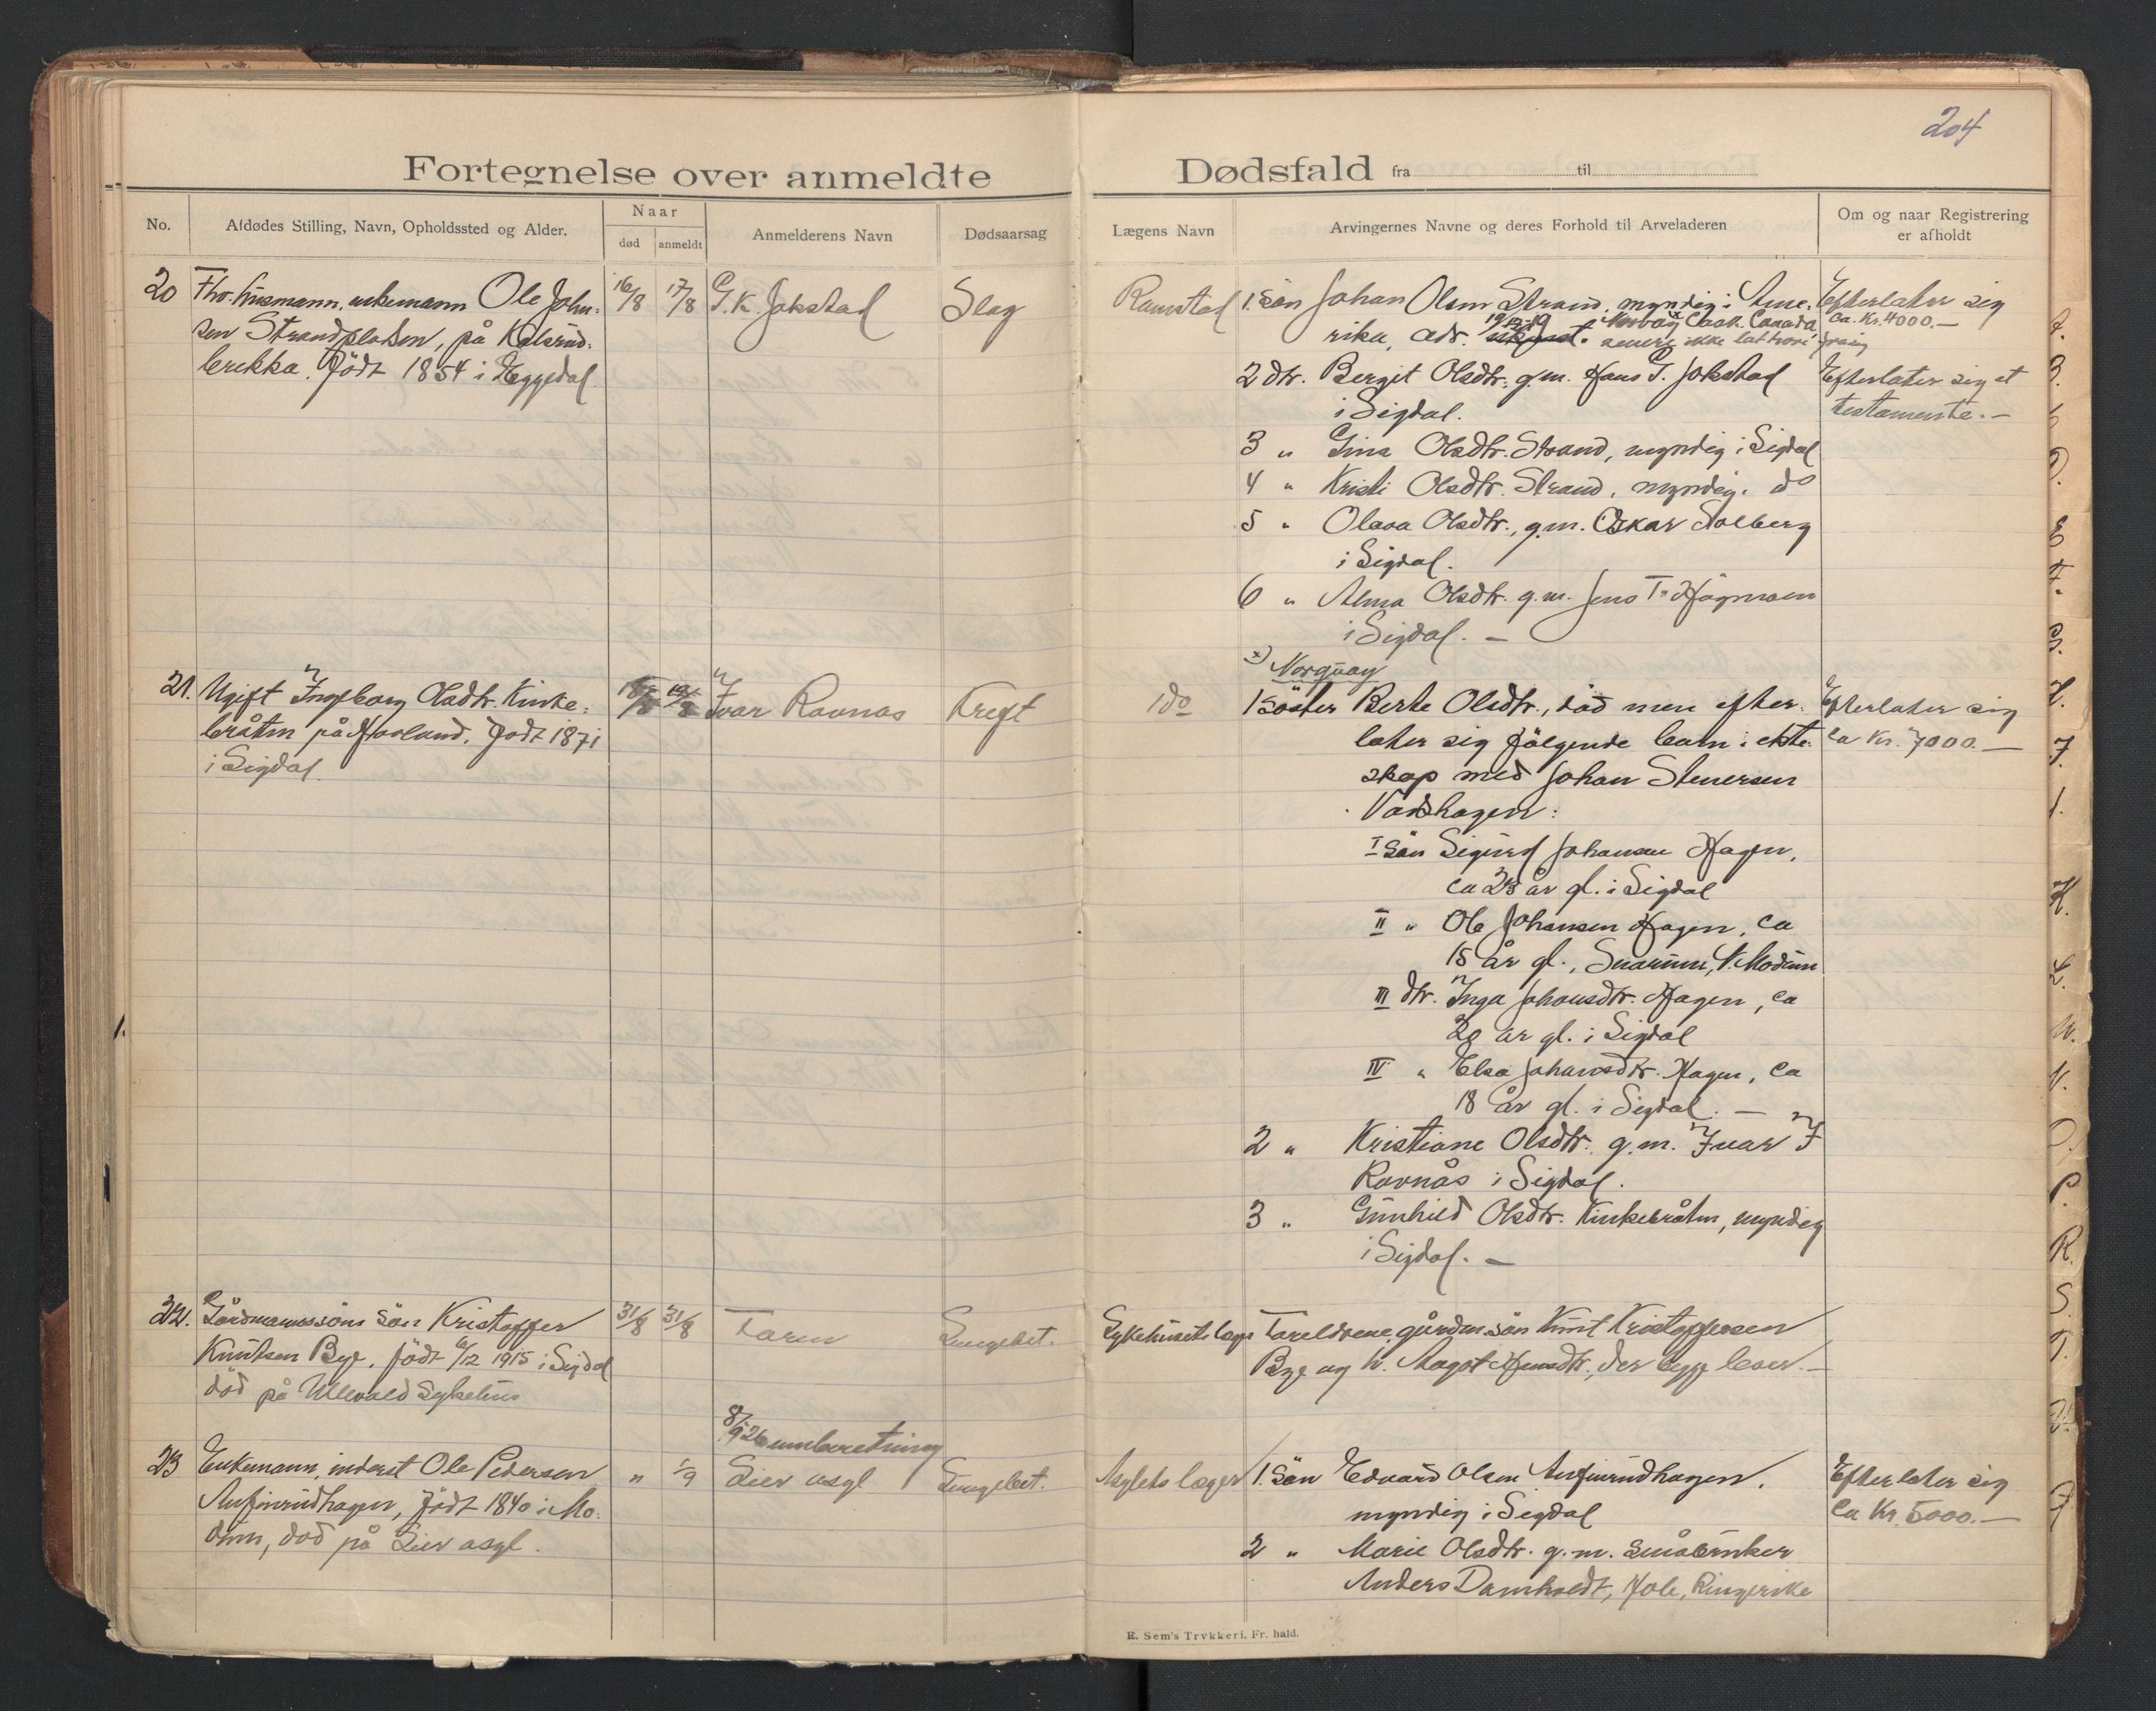 204
Fortegnelse over anmeldte Dødsfald fra til
No.
Afdødes Stilling, Navn, Opholdssted og Alder.
Naar
død anmeldt
Anmelderens Navn
Dødsaarsag
Lægens Navn
Arvingernes Navne og deres Forhold til Arveladeren
Om og naar Registrering
er afholdt
20 Fhv. husmann, enkemann Ole John-
sen Strandpladsen, på
brekka. Født 1854 i Eggedal
16/8 17/8 G. K. Jokstad Slag
Ramstad 1. sön Johan Olsen Strand, myndig i Ame-
rika, adr. ukjent. Canada
senere ikke latt høre fra sig
2 dtr. Bergit Olsdtr. g.m. Hans G. Jokstad
i Sigdal.
3 " Gina Olsdtr. Strand, myndig i Sigdal
4 " Kristi Olsdtr. Strand, myndig. do
5 " Olava Olsdtr., g.m. Oskar Solberg
i Sigdal.
6 " Alma Olsdtr. g.m. Jens T. Hågmoen
i Sigdal. —
x) Norquay
Efterlater sig
ca. Kr. 4000.—
Efterlater sig et
testamente. —
21. Ugift Ingeborg Olsdtr. Kinke-
bråten på Hovland. Født 1871
i Sigdal.
Ivar Ravnås Kreft
do 1 söster Berte Olsdtr., död men efter-
later sig följende barn i ekte-
skap med Johan Stenersen
Vadshagen:
I sön Sigurd Johansen Hagen,
ca 23 år gl. i Sigdal
II " Ole Johansen Hagen, ca
15 år gl., Snarum, N. Modum
III dtr. Inga Johansdtr. Hagen, ca
20 år gl. i Sigdal
IV " Elsa Johansdtr. Hagen, ca
18 år gl. i Sigdal. —
2 " Kristiane Olsdtr. g.m. Ivar I
Ravnås i Sigdal.
3 " Gunhild Olsdtr. Kinkebråten, myndig
i Sigdal. —
Efterlater sig
ca Kr. 7000.—
22. Gårdmannssöns sön Kristoffer
Knutsen Bye, födt 6/12 1915 i Sigdal
död på Ullevold Sykehus
31/8 31/8 Faren Lungebet.
Sykehusets læge Foreldrene gårdm.sön Knut Kristoffersen
Bye og h. Magot Hansdtr., der begge lever. —
8/9 26 innberetning
23 Enkemann, inderst Ole Pedersen
Anfinrudhagen, födt 1840 i Mo-
dum, död på Lier asyl.
" 1/9 Lier asyl Lungebet.
Asylets læger 1. Sön Edvard Olsen Anfinrudhagen,
myndig i Sigdal
2 " Marie Olsdtr. g.m. småbruker
Anders Damholdt, Hole, Ringerike
Efterlater sig
ca Kr. 5000.—
E. Sem's Trykkeri. Fr. hald.